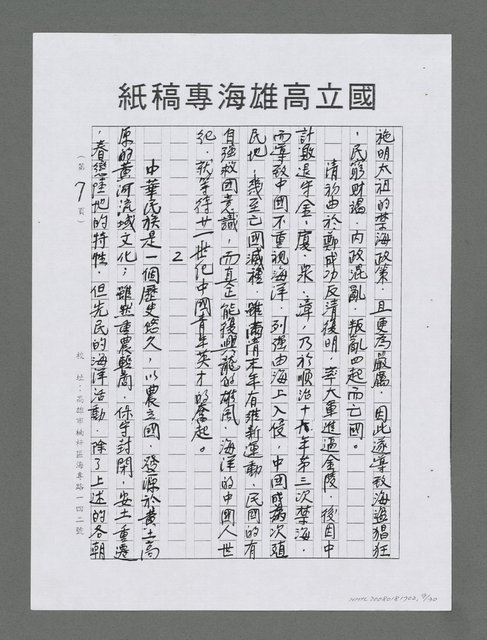 國立高雄海專稿紙
施明太祖的禁海政策,且更為嚴厲,因此遂導致海盜猖狂
,民窮財竭,內政混亂,叛亂四起而亡國。
清初由於鄭成功反清復明,率大軍進逼金陵,後因中
計敗退守金、廈、泉、漳,乃於順治十八年第三次禁海,
而導致中國不重視海洋,列強由海上入侵,中國成為次殖
民地,幾至亡國滅種,雖南清末年有維新運動,民國的有
自強救國意識,而真正能復興龍的雄風,海洋的中國人世
紀,就等待廿一世紀中國青年英才的奮起。
2
中華民族是一個歷史悠久,以農立國,發源於黃土高
原的黃河流域文化;雖然重農輕商,保守封閉,安土重遷
,眷戀陸地的特性,但先民的海洋活動,除了上述的各朝
(第7頁)
校址:高雄市楠梓區海專路一四二號
NMTL20080181702, 9/30